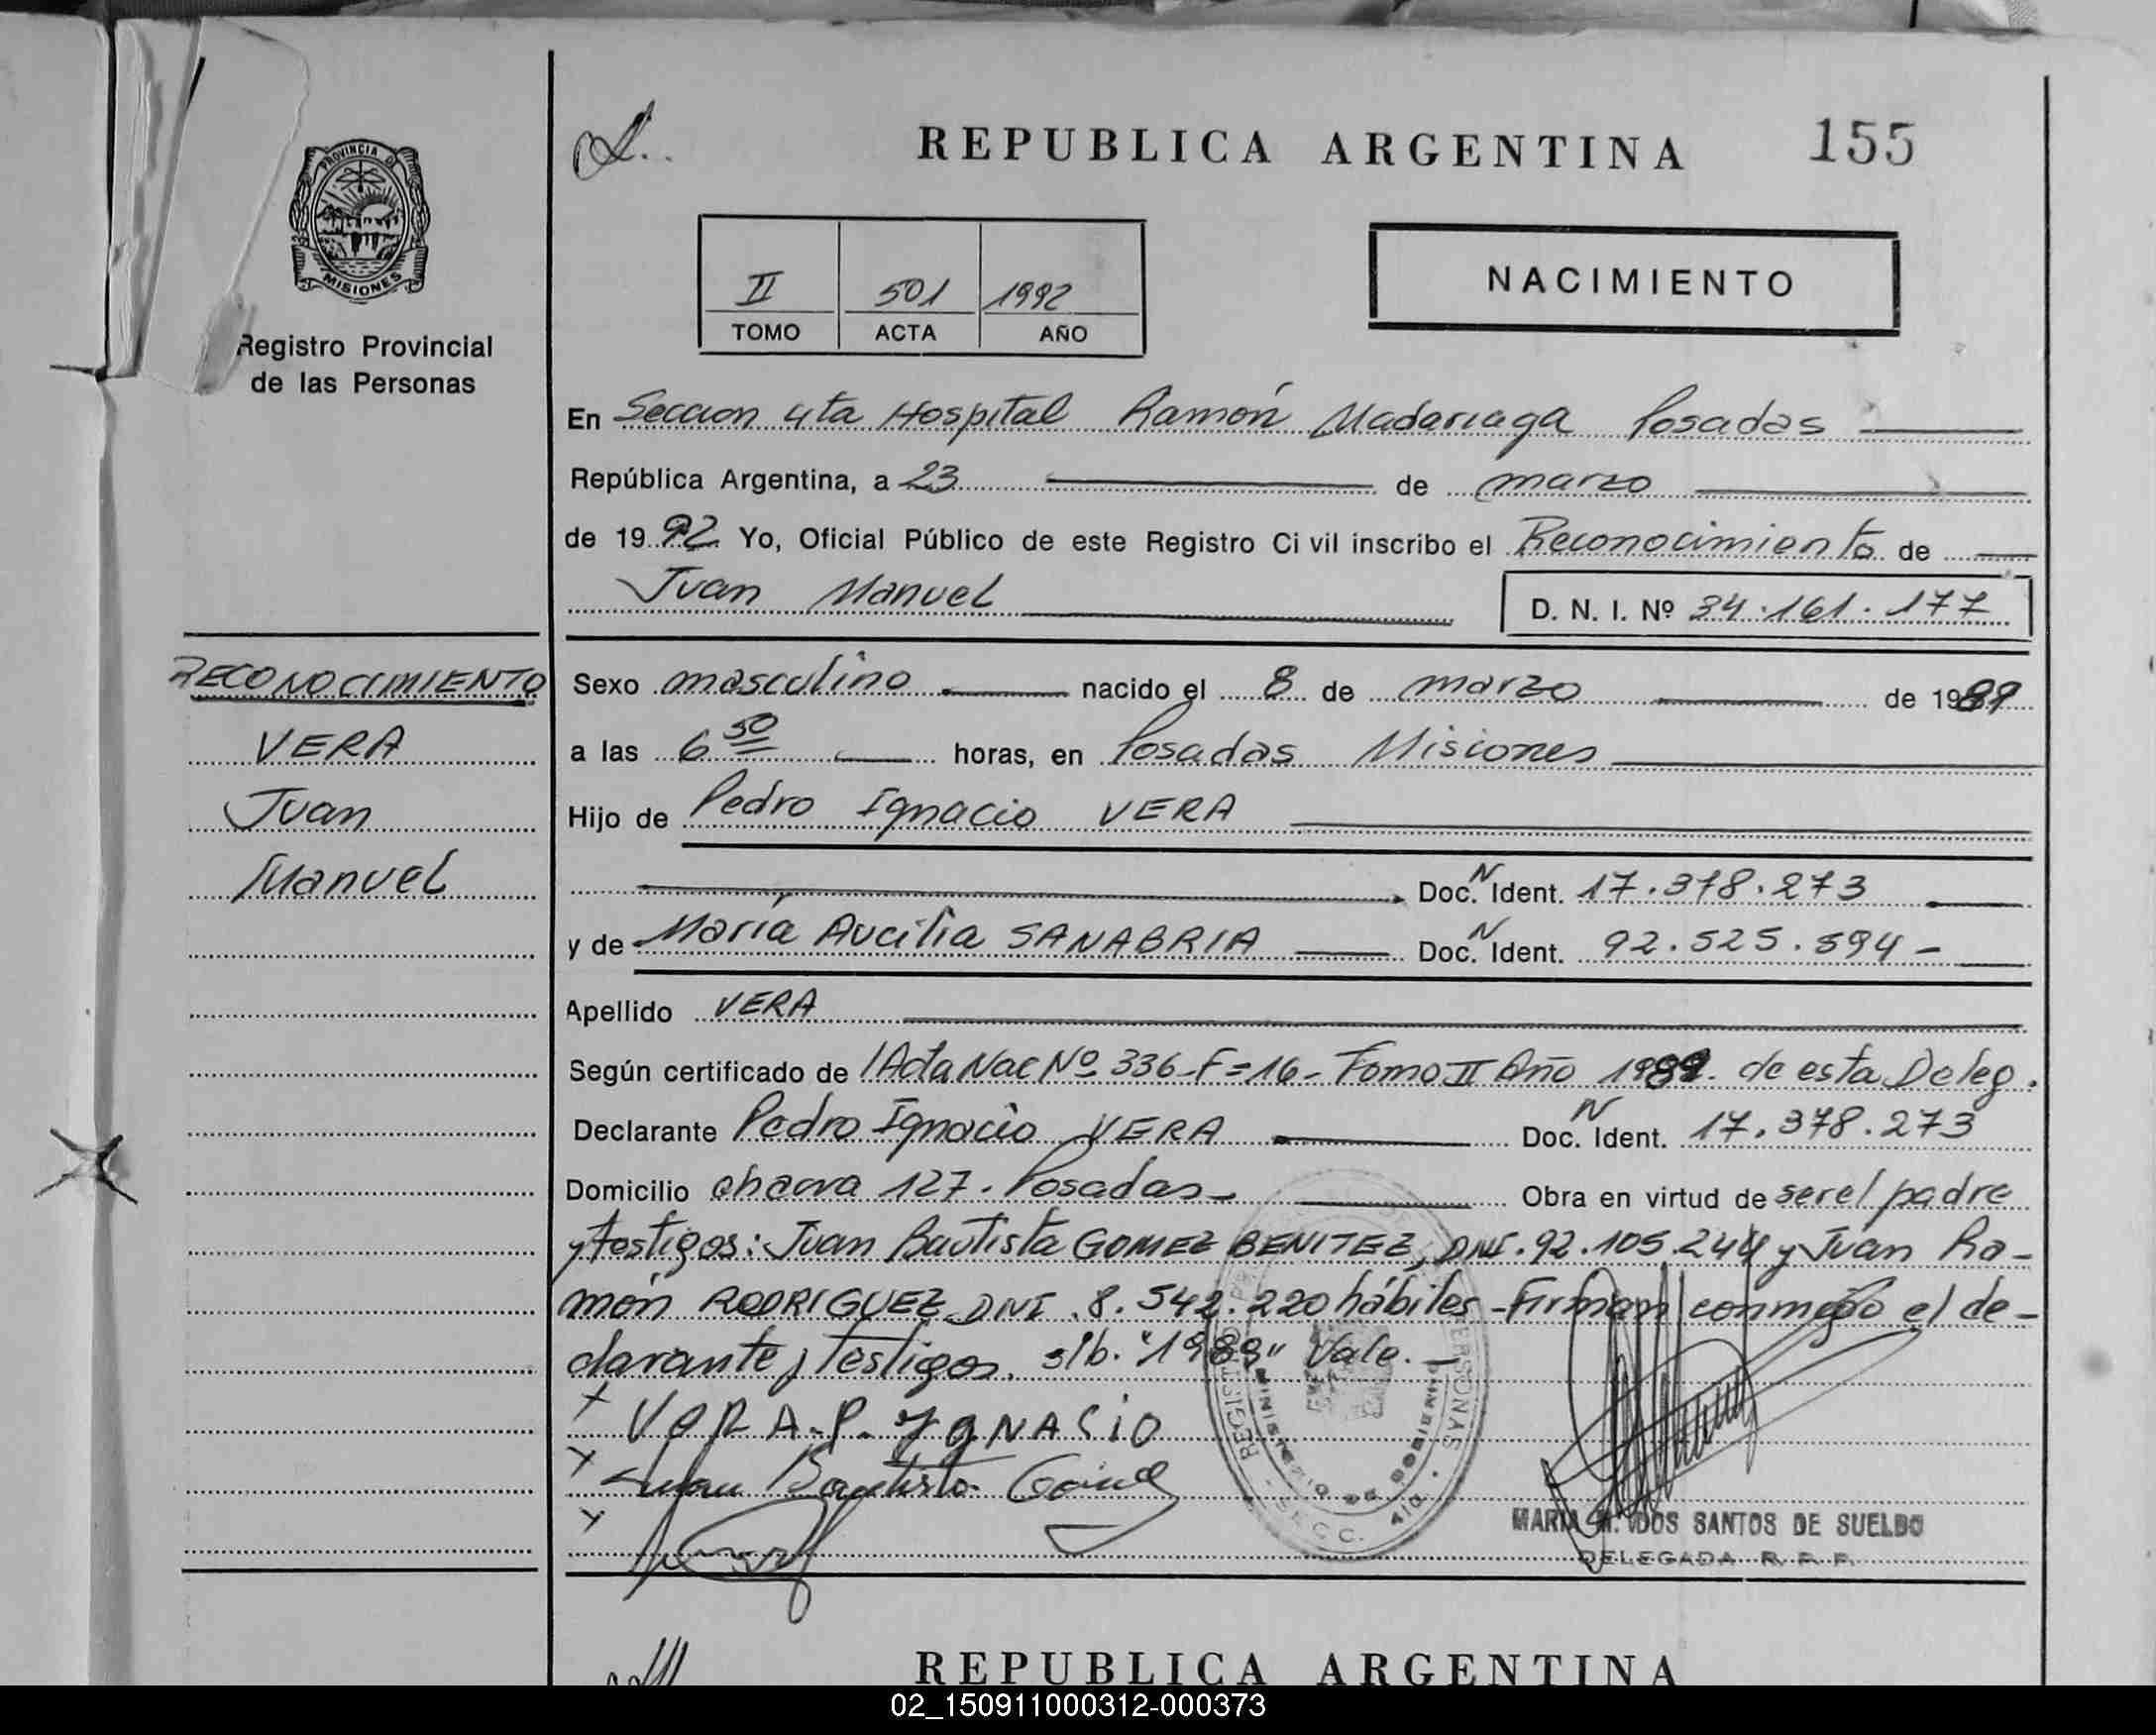 REPUBLICA ARGENTINA 155
PROVINCIA DE
MISIONES
Registro Provincial
de las Personas
II 501 1992
TOMO ACTA AÑO
NACIMIENTO
En Seccion 4ta Hospital Ramón Madariaga Posadas
República Argentina, a 23 de marzo
de 1992 Yo, Oficial Público de este Registro Civil inscribo el Reconocimiento de
Juan Manuel D. N. I. Nº 34.161.177
RECONOCIMIENTO
VERA
Juan
Manuel
Sexo masculino nacido el 8 de marzo de 1989
a las 6 50 horas, en Posadas Misiones
Hijo de Pedro Ignacio VERA
Doc. N Ident. 17.378.273
y de María Aucilia SANABRIA Doc. N Ident. 92.525.594-
Apellido VERA
Según certificado de /Acta Nac Nº 336-F=16- Tomo II Año 1989. de esta Deleg.
Declarante Pedro Ignacio VERA Doc. N Ident. 17.378.273
Domicilio chacra 127. Posadas- Obra en virtud de ser el padre
y testigos: Juan Bautista GOMEZ BENITEZ, DNI. 92.105.244 y Juan Ra-
món RODRIGUEZ DNI 8.542.220 hábiles - Firman conmigo el de-
clarante y testigos. s/b. "1989" Vale.-
x VERA.P. YGNACIO
x Juan Bautista
x
MARIA M. DOS SANTOS DE SUELDO
DELEGADA R. P. P.
REPUBLICA ARGENTINA
02_150911000312-000373